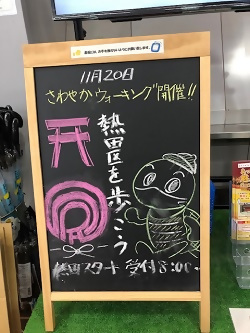 11月20日
さわやかウォーキング開催!!
熱田区を歩こう
スタート 受付8:00〜